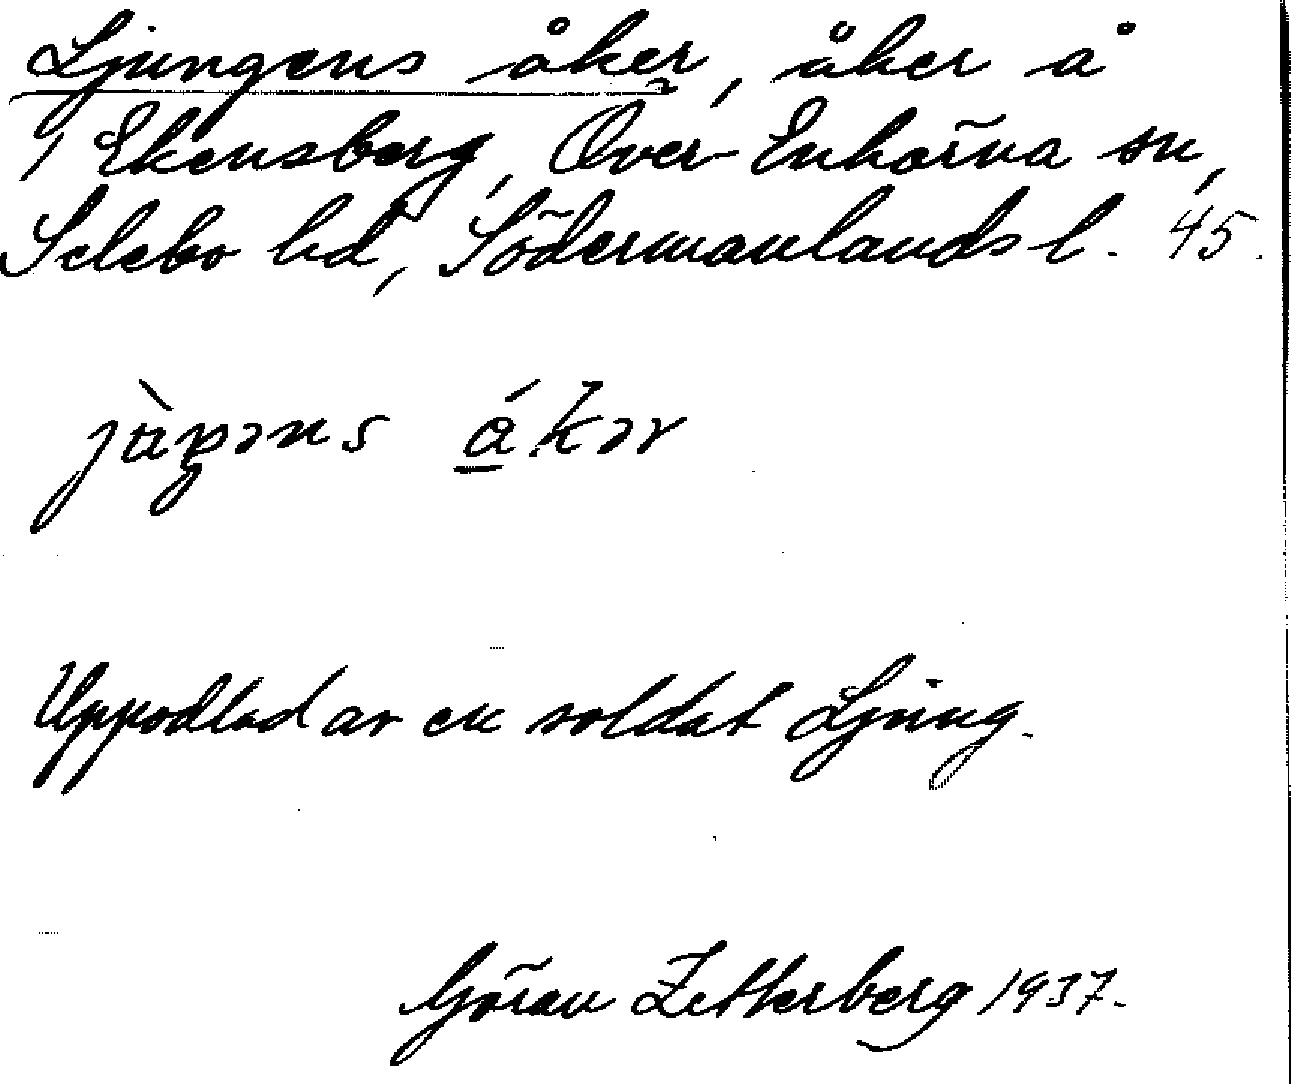 Ljungens åker, åker å
Ekensberg, Över-Enhörna sn,
Selebo hd, Södermanlands l. 45.
jùŋəns ákər
Uppodlad av en soldat Ljung.
Göran Zetterberg 1937.